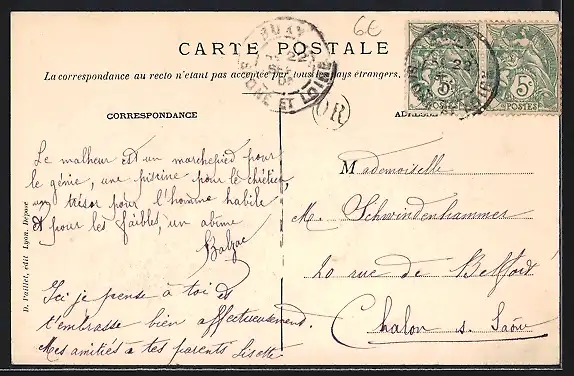 6€
CARTE POSTALE
La correspondance au recto n'étant pas acceptée par tous les pays étrangers,
CORRESPONDANCE
OR
5c
POSTES
5c
POSTES
22
SAONE ET LOIRE
Le malheur est un marchepied pour
le génie, une piscine pour le chrétien,
un trésor pour l'homme habile
et pour les faibles, un abîme
Balzac
Ici je pense à toi et
t'embrasse bien affectueusement.
Mes amitiés à tes parents Lisette
Mademoiselle
M. Schwindenhammer
20 rue de Belfort
Chalon s. Saône
D. Poillet, édit Lyon. Déposé